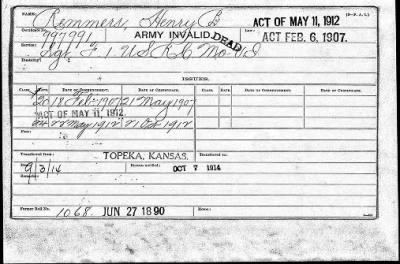 NAME: Remmers, Henry B ACT OF MAY 11, 1912 (D.-F. A. I.)
Certificate No. 997991 ARMY INVALID. DEAD ACT FEB. 6, 1907.
Service: Sgt F 1, U S R C Mo
ISSUES.
CLASS. RATE. DATE OF COMMENCEMENT. DATE OF CERTIFICATE. CLASS. RATE. DATE OF COMMENCEMENT. DATE OF CERTIFICATE.
20 18 Feb 1907 21 May 1907
ACT OF MAY 11, 1912.
22 May 1912 21 Oct 1912
From:
Transferred from: TOPEKA, KANSAS. Transferred to:
9/3/14 OCT 7 1914
Remarks:
Former Roll No. 1068. JUN 27 1890 Home: